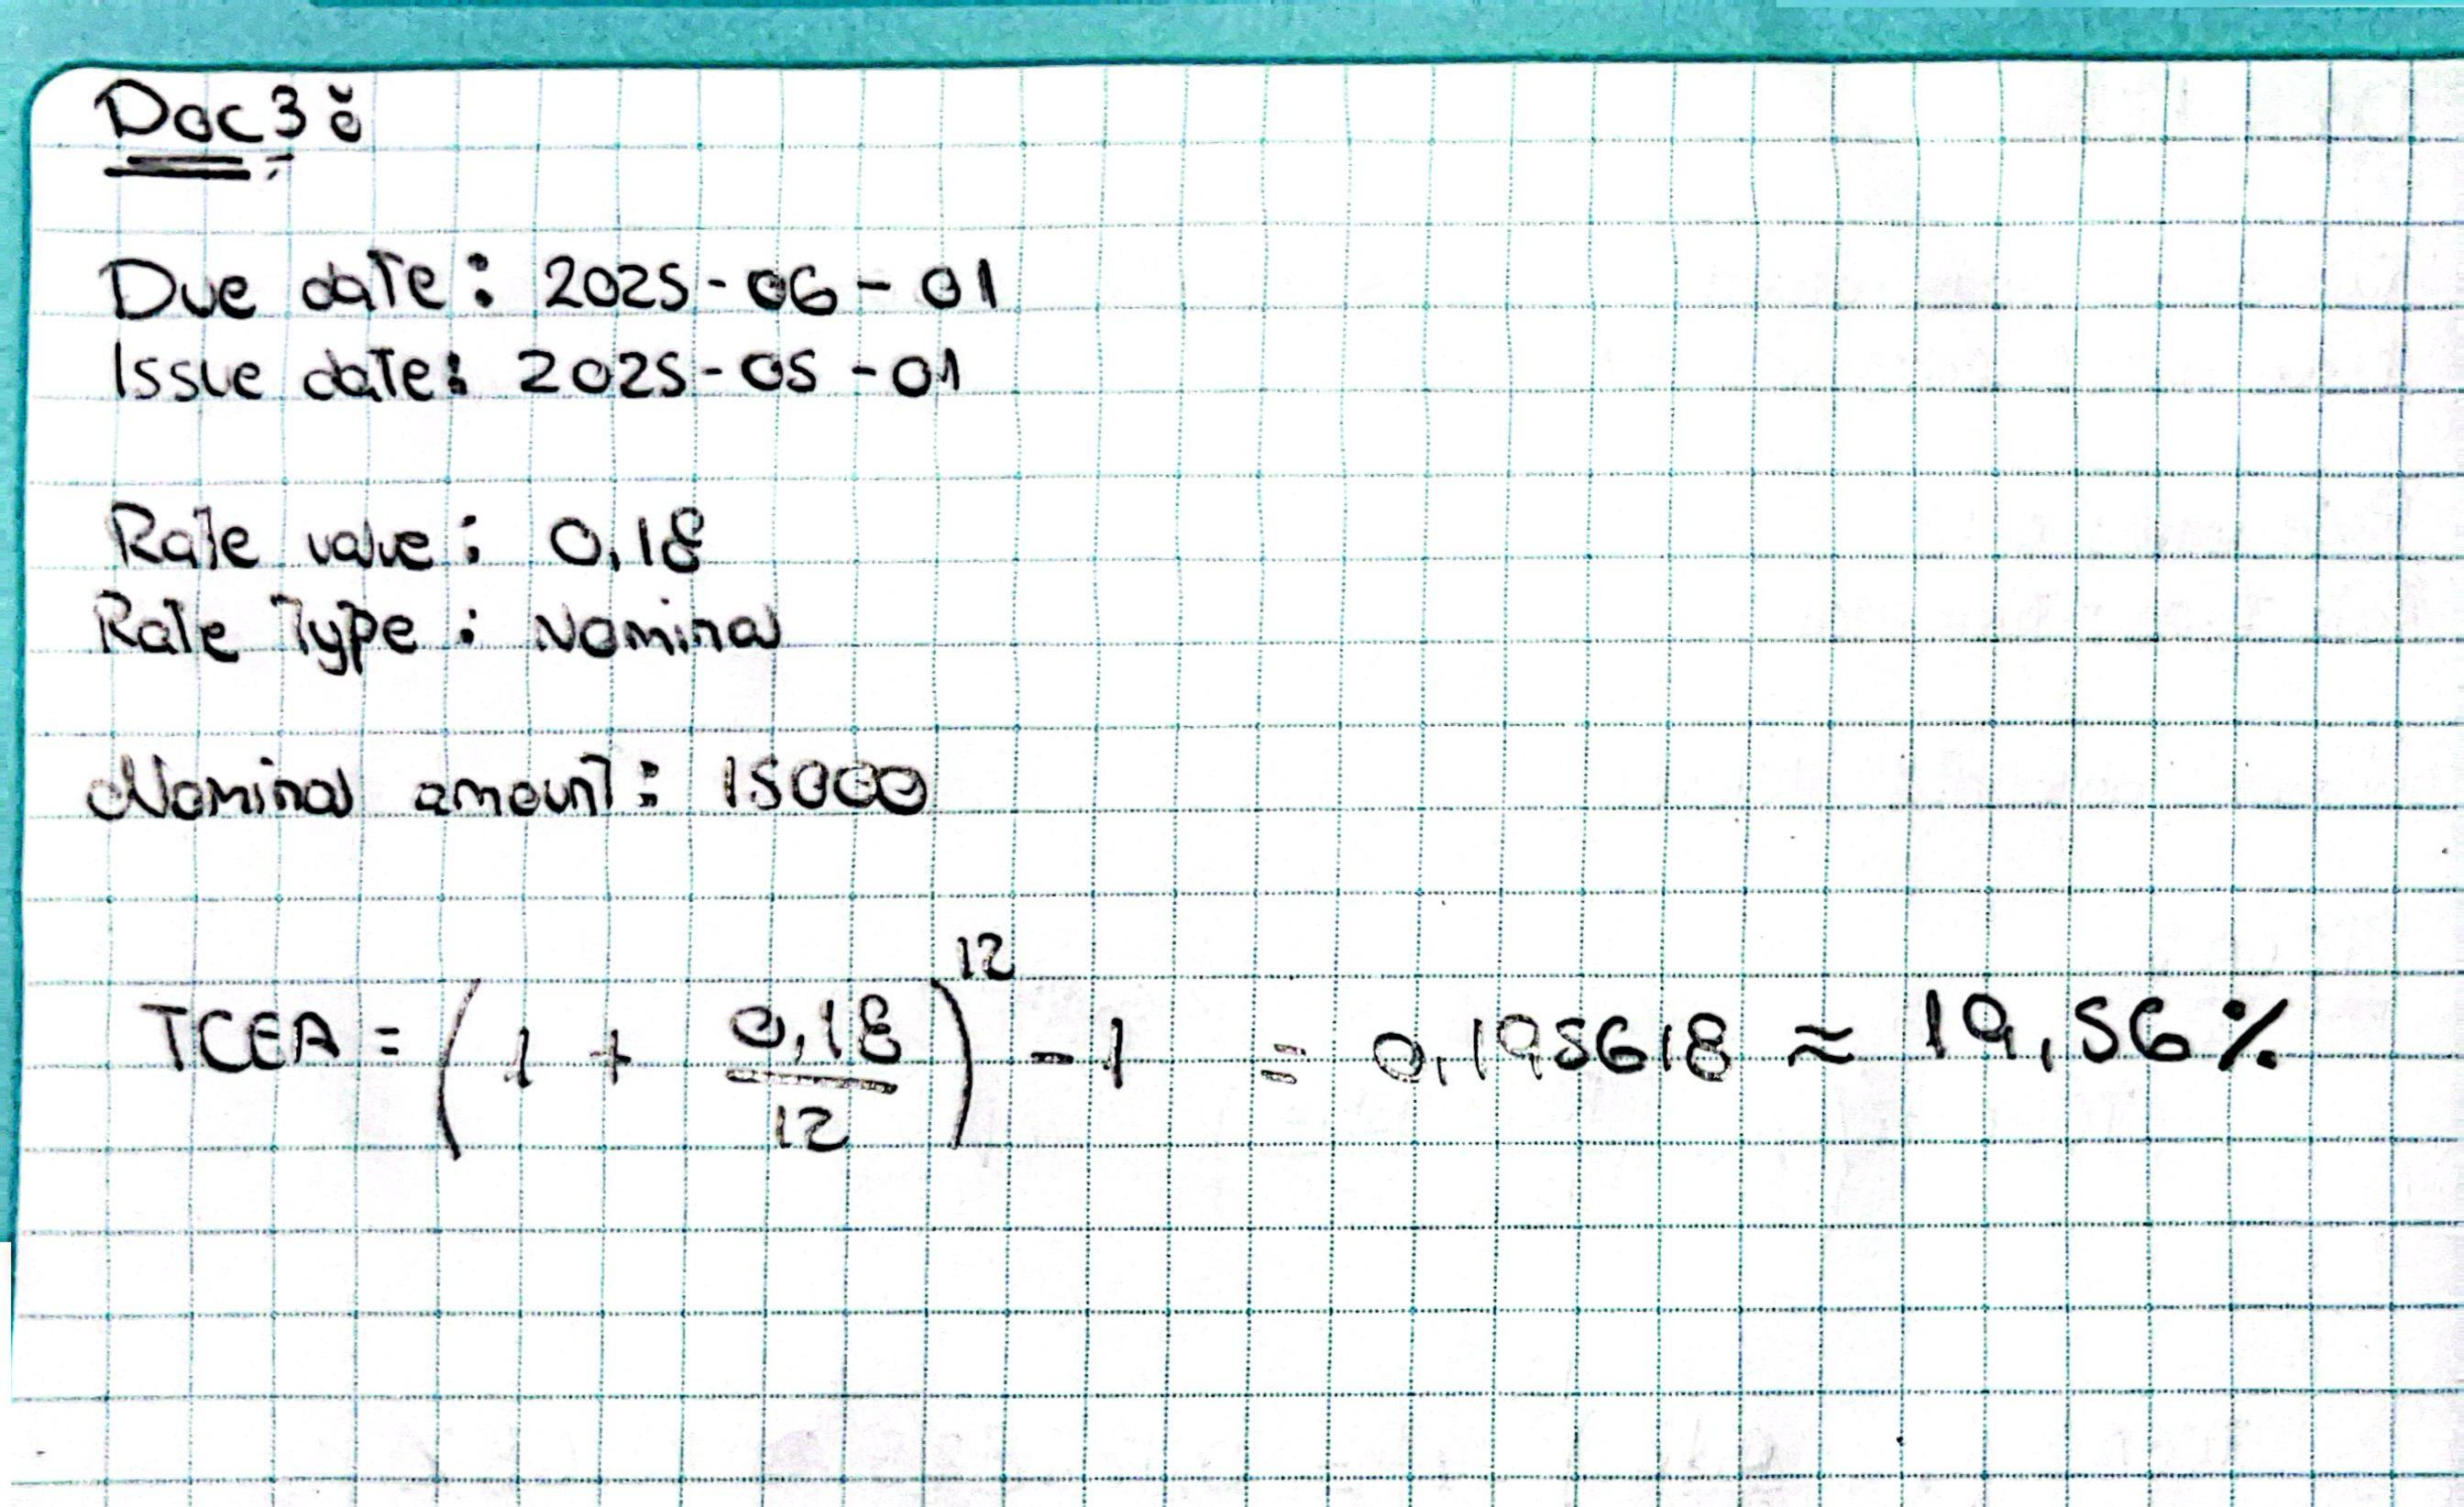 Doc 3:
Due date: 2025-06-01
Issue date: 2025-05-01
Rate value: 0,18
Rate Type: Nominal
Nominal amount: 15000
TCEA = (1 + 0,18/12)^12 - 1 = 0,195618 ≈ 19,56%